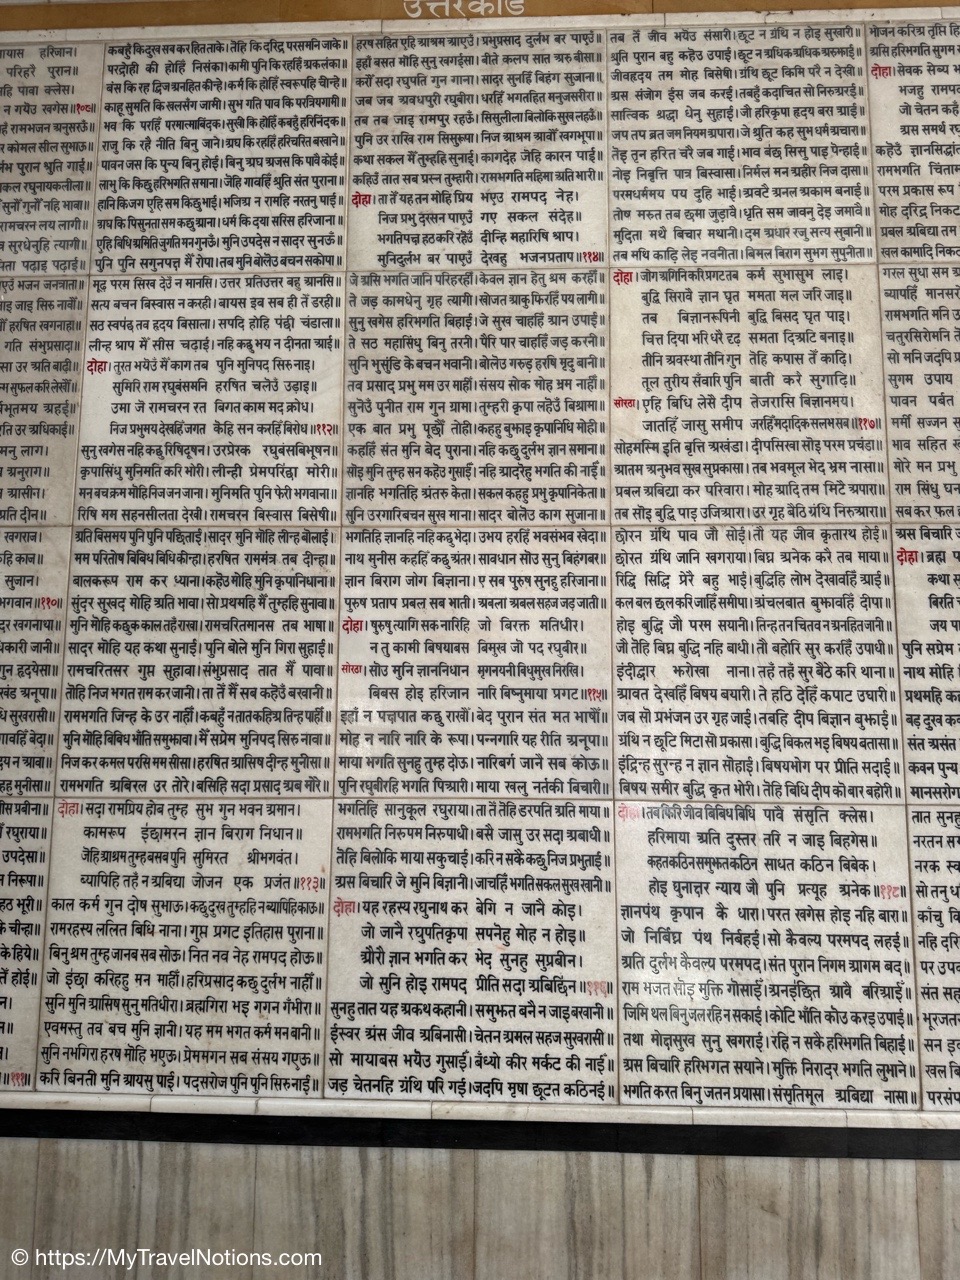 उत्तरकांड
कबहुँ कि दुख सब कर हित ताके। तेहि कि दरिद्र परसमनि जाके॥
परद्रोही की होहिं निसंका। कामी पुनि कि रहहिं अकलंका॥
बंस कि रह द्विज अनहित कीन्हे। कर्म कि होहिं स्वरूपहि चीन्हे॥
काहू सुमति कि खल सँग जामी। सुभ गति पाव कि परत्रियगामी॥
भव कि परहिं परमात्माबिंदक। सुखी कि होहिं कबहुँ हरिनिंदक॥
राजु कि रहै नीति बिनु जाने। अघ कि रहहिं हरिचरित बखाने॥
पावन जस कि पुन्य बिनु होई। बिनु अघ अजस कि पावै कोई॥
लाभु कि किछु हरिभगति समाना। जेहि गावहिं श्रुति संत पुराना॥
हानि कि जग एहि सम किछु भाई। भजिअ न रामहि नरतनु पाई॥
अघ कि पिसुनता सम कछु आना। धर्म कि दया सरिस हरिजाना॥
एहि बिधि अमिति जुगति मन गुनऊँ। मुनि उपदेस न सादर सुनऊँ॥
पुनि पुनि सगुनपच्छ मैं रोपा। तब मुनि बोलेउ बचन सकोपा॥
मूढ़ परम सिख देउँ न मानसि। उत्तर प्रतिउत्तर बहु आनसि॥
सत्य बचन बिस्वास न करही। बायस इव सब ही ते डरही॥
सठ स्वपच्छ तव हृदय बिसाला। सपदि होहि पच्छी चंडाला॥
लीन्ह श्राप मैं सीस चढ़ाई। नहि कछु भय न दीनता आई॥
दोहा। तुरत भयेउँ मैं काग तब पुनि मुनिपद सिरु नाइ।
सुमिरि राम रघुबंसमनि हरषित चलेउँ उड़ाइ॥
उमा जे रामचरन रत बिगत काम मद क्रोध।
निज प्रभुमय देखहिं जगत केहि सन करहिं बिरोध॥११२॥
सुनु खगेस नहि कछु रिषिदूषन। उरप्रेरक रघुबंसबिभूषन॥
कृपासिंधु मुनिमति करि भोरी। लीन्ही प्रेमपरिच्छा मोरी॥
मन बच क्रम मोहि निज जन जाना। मुनिमति पुनि फेरी भगवाना॥
रिषि मम सहनसीलता देखी। रामचरन बिस्वास बिसेषी॥
अति बिसमय पुनि पुनि पछिताई। सादर मुनि मोहि लीन्ह बोलाई॥
मम परितोष बिबिध बिधि कीन्हा। हरषित राममंत्र तब दीन्हा॥
बालकरूप राम कर ध्याना। कहेउ मोहि मुनि कृपानिधाना॥
सुंदर सुखद मोहि अति भावा। सो प्रथमहि मैं तुम्हहि सुनावा॥
मुनि मोहि कछुक काल तहँ राखा। रामचरितमानस तब भाषा॥
सादर मोहि यह कथा सुनाई। पुनि बोले मुनि गिरा सुहाई॥
रामचरितसर गुप्त सुहावा। संभुप्रसाद तात मैं पावा॥
तोहि निज भगत राम कर जानी। ता तें मैं सब कहेउँ बखानी॥
रामभगति जिन्ह के उर नाहीं। कबहुँ न तात कहिअ तिन्ह पाहीं॥
मुनि मोहि बिबिध भाँति समुझावा। मैं सप्रेम मुनिपद सिरु नावा॥
निज कर कमल परसि मम सीसा। हरषित आसिष दीन्ह मुनीसा॥
रामभगति अबिरल उर तोरे। बसिहि सदा प्रसाद अब मोरे॥
दोहा। सदा रामप्रिय होब तुम्ह सुभ गुन भवन अमान।
कामरूप इच्छामरन ज्ञान बिराग निधान॥
जेहि आश्रम तुम्ह बसब पुनि सुमिरत श्रीभगवंत।
ब्यापिहि तहँ न अबिद्या जोजन एक प्रजंत॥११३॥
काल कर्म गुन दोष सुभाऊ। कछु दुख तुम्हहि न ब्यापिहि काऊ॥
रामरहस्य ललित बिधि नाना। गुप्त प्रगट इतिहास पुराना॥
बिनु श्रम तुम्ह जानब सब सोऊ। नित नव नेह रामपद होऊ॥
जो इच्छा करिहहु मन माहीं। हरिप्रसाद कछु दुर्लभ नाहीं॥
सुनि मुनि आसिष सुनु मतिधीरा। ब्रह्मगिरा भइ गगन गँभीरा॥
एवमस्तु तव बच मुनि ज्ञानी। यह मम भगत कर्म मन बानी॥
सुनि नभगिरा हरष मोहि भएऊ। प्रेममगन सब संसय गएऊ॥
करि बिनती मुनि आयसु पाई। पदसरोज पुनि पुनि सिरु नाई॥
हरष सहित एहि आश्रम आएउँ। प्रभुप्रसाद दुर्लभ बर पाएउँ॥
इहाँ बसत मोहि सुनु खगईसा। बीते कलप सात अरु बीसा॥
करौं सदा रघुपति गुन गाना। सादर सुनहिं बिहंग सुजाना॥
जब जब अवधपुरी रघुबीरा। धरहिं भगतहित मनुजसरीरा॥
तब तब जाइ रामपुर रहऊँ। सिसुलीला बिलोकि सुख लहऊँ॥
पुनि उर राखि राम सिसुरूपा। निज आश्रम आवौं खगभूपा॥
कथा सकल मैं तुम्हहि सुनाई। कागदेह जेहि कारन पाई॥
कहिउँ तात सब प्रस्न तुम्हारी। रामभगति महिमा अति भारी॥
दोहा। ता तें यह तन मोहि प्रिय भएउ रामपद नेह।
निज प्रभु दरसन पाएउँ गए सकल संदेह॥
भगतिपच्छ हठ करि रहेउँ दीन्हि महारिषि श्राप।
मुनिदुर्लभ बर पाएउँ देखहु भजनप्रताप॥११४॥
जे असि भगति जानि परिहरहीं। केवल ज्ञान हेतु श्रम करहीं॥
ते जड़ कामधेनु गृह त्यागी। खोजत आकु फिरहिं पय लागी॥
सुनु खगेस हरिभगति बिहाई। जे सुख चाहहिं आन उपाई॥
ते सठ महासिंधु बिनु तरनी। पैरि पार चाहहिं जड़ करनी॥
सुनि भुसुंडि के बचन भवानी। बोलेउ गरुड़ हरषि मृदु बानी॥
तव प्रसाद प्रभु मम उर माहीं। संसय सोक मोह भ्रम नाहीं॥
सुनेउँ पुनीत राम गुन ग्रामा। तुम्हरी कृपा लहेउँ बिश्रामा॥
एक बात प्रभु पूछौं तोही। कहहु बुझाइ कृपानिधि मोही॥
कहहिं संत मुनि बेद पुराना। नहि कछु दुर्लभ ज्ञान समाना॥
सोइ मुनि तुम्ह सन कहेउ गुसाईं। नहि आदरेहु भगति की नाईं॥
ज्ञानहि भगतिहि अंतरु केता। सकल कहहु प्रभु कृपानिकेता॥
सुनि उरगारिबचन सुख माना। सादर बोलेउ काग सुजाना॥
भगतिहि ज्ञानहि नहि कछु भेदा। उभय हरहिं भवसंभव खेदा॥
नाथ मुनीस कहहिं कछु अंतर। सावधान सोउ सुनु बिहंगबर॥
ज्ञान बिराग जोग बिज्ञाना। ए सब पुरुष सुनहु हरिजाना॥
पुरुष प्रताप प्रबल सब भाती। अबला अबल सहज जड़ जाती॥
दोहा। पुरुषु त्यागि सक नारिहि जो बिरक्त मतिधीर।
न तु कामी बिषयाबस बिमुख जो पद रघुबीर॥
सोरठा। सोउ मुनि ज्ञाननिधान मृगनयनी बिधुमुख निरखि।
बिबस होइ हरिजान नारि बिष्नुमाया प्रगट॥११५॥
इहाँ न पच्छपात कछु राखौं। बेद पुरान संत मत भाषौं॥
मोह न नारि नारि के रूपा। पन्नगारि यह रीति अनूपा॥
माया भगति सुनहु तुम्ह दोऊ। नारिबर्ग जानै सब कोऊ॥
पुनि रघुबीरहि भगति पिआरी। माया खलु नर्तकी बिचारी॥
भगतिहि सानुकूल रघुराया। ता तें तेहि डरपति अति माया॥
रामभगति निरुपम निरुपाधी। बसै जासु उर सदा अबाधी॥
तेहि बिलोकि माया सकुचाई। करि न सकै कछु निज प्रभुताई॥
अस बिचारि जे मुनि बिज्ञानी। जाचहिं भगति सकल सुख खानी॥
दोहा। यह रहस्य रघुनाथ कर बेगि न जानै कोइ।
जो जानै रघुपतिकृपा सपनेहु मोह न होइ॥
औरौ ज्ञान भगति कर भेद सुनहु सुप्रबीन।
जो सुनि होइ रामपद प्रीति सदा अबिछिंन॥११६॥
सुनहु तात यह अकथ कहानी। समुझत बनै न जाइ बखानी॥
ईस्वर अंस जीव अबिनासी। चेतन अमल सहज सुखरासी॥
सो मायाबस भयेउ गुसाईं। बँध्यो कीर मर्कट की नाईं॥
जड़ चेतनहि ग्रंथि परि गई। जदपि मृषा छूटत कठिनई॥
तब तें जीव भयेउ संसारी। छूट न ग्रंथि न होइ सुखारी॥
श्रुति पुरान बहु कहेउ उपाई। छूट न अधिक अधिक अरुझाई॥
जीवहृदय तम मोह बिसेषी। ग्रंथि छूट किमि परै न देखी॥
अस संजोग ईस जब करई। तबहुँ कदाचित सो निरुअरई॥
सात्विक श्रद्धा धेनु सुहाई। जौ हरिकृपा हृदय बस आई॥
जप तप ब्रत जम नियम अपारा। जे श्रुति कह सुभ धर्म अचारा॥
तेइ तृन हरित चरै जब गाई। भाव बच्छ सिसु पाइ पेन्हाई॥
नोइ निबृत्ति पात्र बिस्वासा। निर्मल मन अहीर निज दासा॥
परमधर्ममय पय दुहि भाई। अवटै अनल अकाम बनाई॥
तोष मरुत तब छमा जुड़ावै। धृति सम जावनु देइ जमावै॥
मुदिता मथै बिचार मथानी। दम अधार रजु सत्य सुबानी॥
तब मथि काढ़ि लेइ नवनीता। बिमल बिराग सुभग सुपुनीता॥
दोहा। जोग अगिनि करि प्रगट तब कर्म सुभासुभ लाइ।
बुद्धि सिरावै ज्ञान घृत ममता मल जरि जाइ॥
तब बिज्ञानरूपिनी बुद्धि बिसद घृत पाइ।
चित्त दिया भरि धरै दृढ़ समता दिअटि बनाइ॥
तीनि अवस्था तीनि गुन तेहि कपास तें काढ़ि।
तूल तुरीय सँवारि पुनि बाती करै सुगाढ़ि॥
सोरठा। एहि बिधि लेसै दीप तेजरासि बिज्ञानमय।
जातहिं जासु समीप जरहिं मदादिक सलभ सब॥११७॥
सोहमस्मि इति बृत्ति अखंडा। दीपसिखा सोइ परम प्रचंडा॥
आतम अनुभव सुख सुप्रकासा। तब भवमूल भेद भ्रम नासा॥
प्रबल अबिद्या कर परिवारा। मोह आदि तम मिटै अपारा॥
तब सोइ बुद्धि पाइ उजिआरा। उर गृह बैठि ग्रंथि निरुआरा॥
छोरन ग्रंथि पाव जौ सोई। तौ यह जीव कृतारथ होई॥
छोरत ग्रंथि जानि खगराया। बिघ्न अनेक करै तब माया॥
रिद्धि सिद्धि प्रेरै बहु भाई। बुद्धिहि लोभ देखावहिं आई॥
कल बल छल करि जाहिं समीपा। अंचलबात बुझावहिं दीपा॥
होइ बुद्धि जौ परम सयानी। तिन्ह तन चितव न अनहित जानी॥
जौ तेहि बिघ्न बुद्धि नहि बाधी। तौ बहोरि सुर करहिं उपाधी॥
इंद्रीद्वार झरोखा नाना। तहँ तहँ सुर बैठे करि थाना॥
आवत देखहिं बिषय बयारी। ते हठि देहिं कपाट उघारी॥
जब सो प्रभंजन उर गृह जाई। तबहि दीप बिज्ञान बुझाई॥
ग्रंथि न छूटि मिटा सो प्रकासा। बुद्धि बिकल भइ बिषय बतासा॥
इंद्रिन्ह सुरन्ह न ज्ञान सोहाई। बिषयभोग पर प्रीति सदाई॥
बिषय समीर बुद्धि कृत भोरी। तेहि बिधि दीप को बार बहोरी॥
दोहा। तब फिरि जीव बिबिध बिधि पावै संसृति क्लेस।
हरिमाया अति दुस्तर तरि न जाइ बिहगेस॥
कहत कठिन समुझत कठिन साधत कठिन बिबेक।
होइ घुनाच्छर न्याय जौ पुनि प्रत्यूह अनेक॥११८॥
ज्ञानपंथ कृपान कै धारा। परत खगेस होइ नहि बारा॥
जो निर्बिघ्न पंथ निर्बहई। सो कैवल्य परमपद लहई॥
अति दुर्लभ कैवल्य परमपद। संत पुरान निगम आगम बद॥
राम भजत सोइ मुक्ति गोसाईं। अनइच्छित आवै बरिआईं॥
जिमि थल बिनु जल रहि न सकाई। कोटि भाँति कोउ करइ उपाई॥
तथा मोक्षसुख सुनु खगराई। रहि न सकै हरिभगति बिहाई॥
अस बिचारि हरिभगत सयाने। मुक्ति निरादर भगति लुभाने॥
भगति करत बिनु जतन प्रयासा। संसृतिमूल अबिद्या नासा॥
© https://MyTravelNotions.com